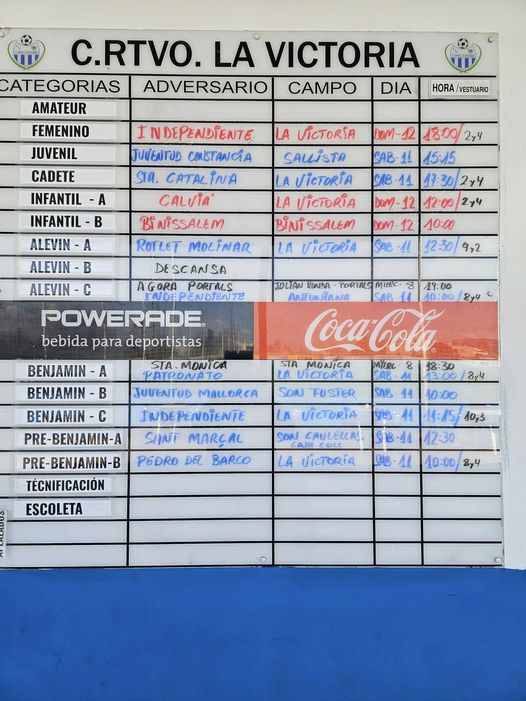 C.RTVO. LA VICTORIA
CATEGORIAS ADVERSARIO CAMPO DIA HORA / VESTUARIO
AMATEUR
FEMENINO INDEPENDIENTE LA VICTORIA DOM-12 18:00/2y4
JUVENIL JUVENTUD CONSTANCIA SALLISTA SAB-11 15:15
CADETE STA. CATALINA LA VICTORIA SAB-11 17:30/2y4
INFANTIL - A CALVIÀ LA VICTORIA DOM-12 12:00/2y4
INFANTIL - B BINISSALEM BINISSALEM DOM-12 10:00
ALEVIN - A ROTLET MOLINAR LA VICTORIA SAB-11 12:30/9y2
ALEVIN - B DESCANSA
ALEVIN - C AGORA PORTALS PORTALS MIERC-8 19:00
INDEPENDIENTE ANTONIANA SAB 11 10:00/8y4
POWERADE
bebida para deportistas
Coca-Cola
BENJAMIN - A STA. MONICA STA MONICA MIERC-8 18:30
PATRONATO LA VICTORIA SAB-11 13:00/8y4
BENJAMIN - B JUVENTUD MALLORCA SON FUSTER SAB-11 10:00
BENJAMIN - C INDEPENDIENTE LA VICTORIA SAB-11 11:15/10y3
PRE-BENJAMIN-A SANT MARÇAL SON CAULELLAS SAB-11 12:30
PRE-BENJAMIN-B PEDRO DEL BARCO LA VICTORIA SAB-11 10:00/8y4
TÉCNIFICACIÓN
ESCOLETA
APLAZADOS